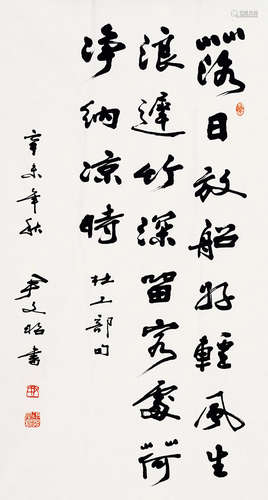 落日放船好轻風生
浪遲竹深留客處荷
净納凉時
杜工部句
辛未年秋
尹文昭書